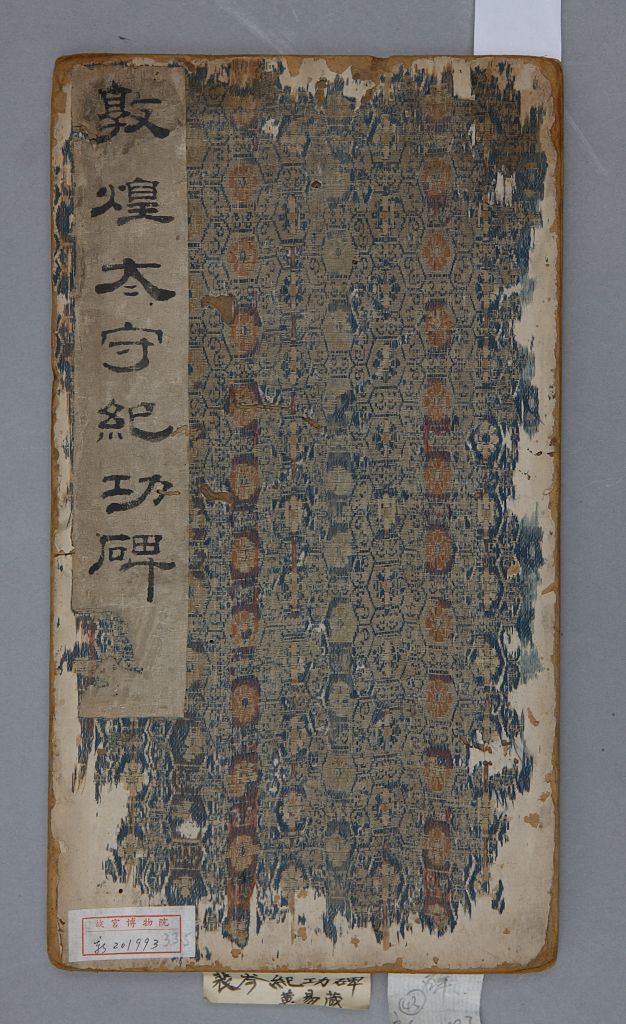 敦煌太守紀功碑
故宮博物院
新201993
裴岑紀功碑
黃易藏
43